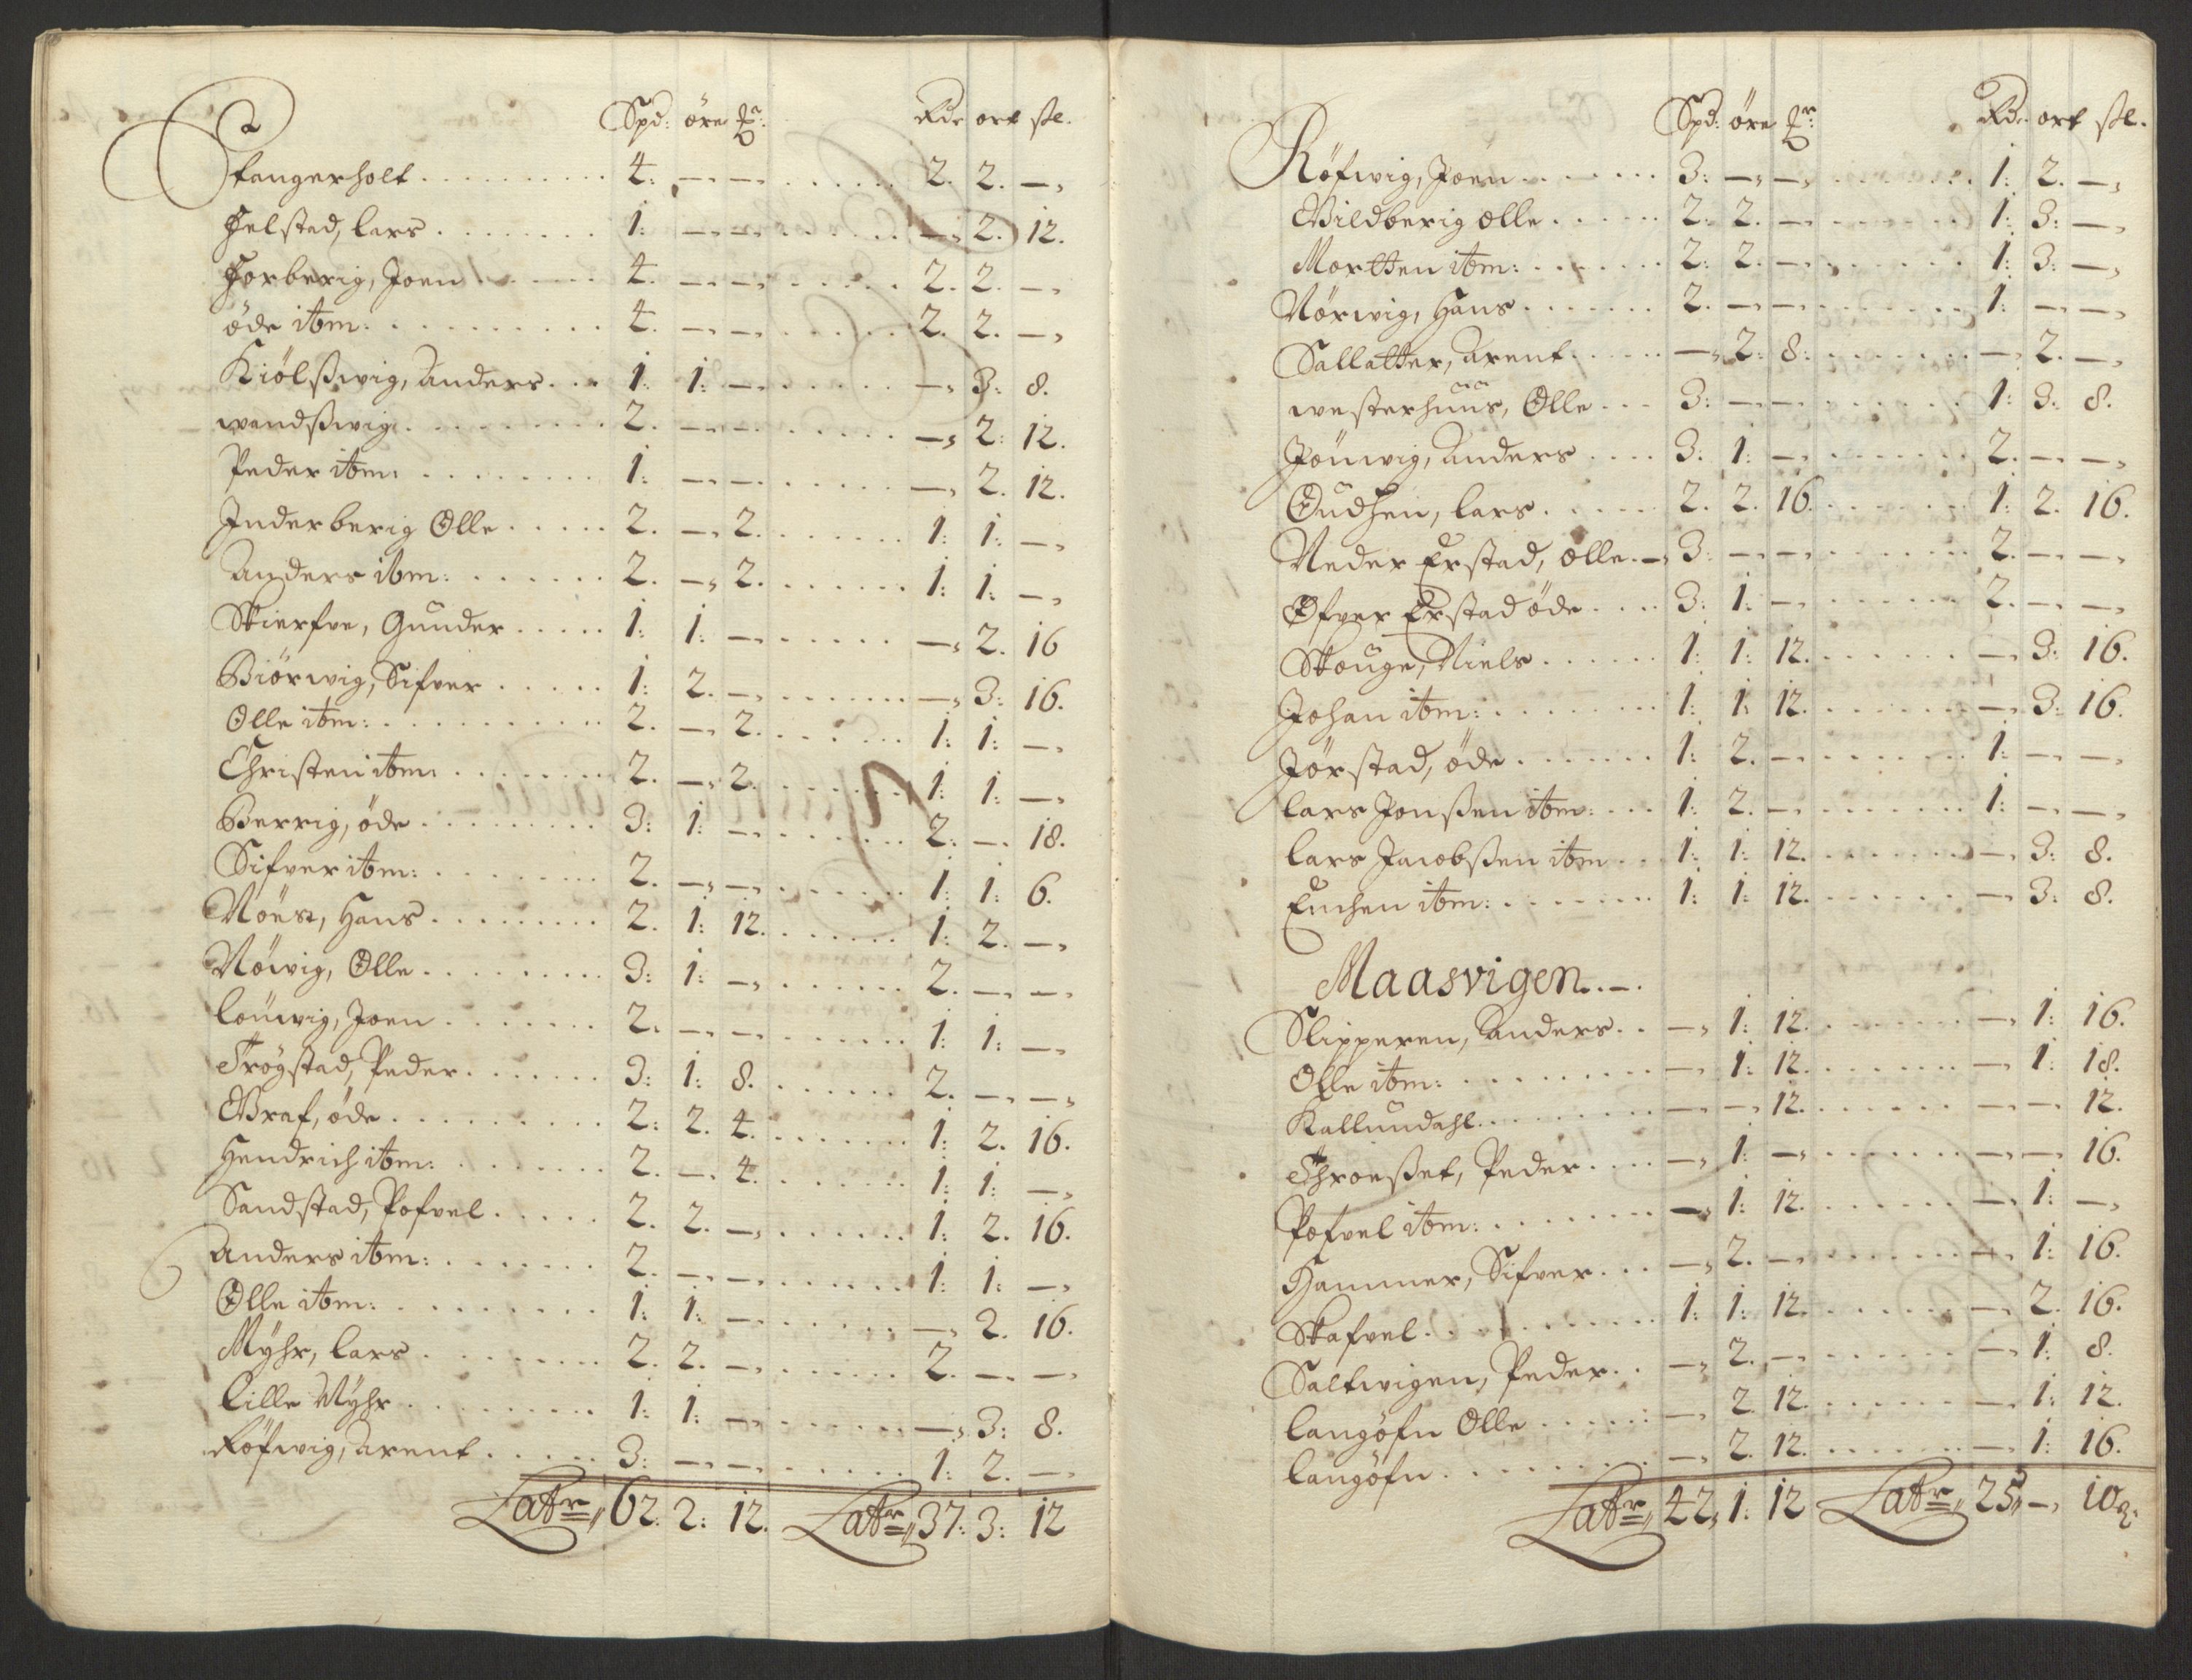 Spd: öre ₤r: Rdr ort sk.
Stangerholt . . . . . . . . . 4. — — . . . . . . 2. 2. —
Helstad, lars . . . . . . . 1. — — . . . . . . — 2. 12.
Forberig, Joen . . . . . 4. — — . . . . . . 2. 2. —
öde itm: . . . . . . . . . 4. — — . . . . . . 2. 2. —
Kiölßwig, Anders . . . 1. 1. — . . . . . . — 3: 8.
wandßwig . . . . . . . . 2. — — . . . . . . — 2: 12.
Peder itm: . . . . . . . . 1. — — . . . . . . — 2. 12.
Inderberig Olle . . . . . 2. — 2. . . . . . . 1: 1: —
Anders itm: . . . . . . . 2. — 2. . . . . . . 1: 1: —
Skierfve, Gunder . . . . . 1: 1: — . . . . . . — 2. 16
Biörwig, Sifver . . . . . 1: 2. — . . . . . . — 3: 16.
Olle itm: . . . . . . . . . 2. — 2. . . . . . . 1: 1: —
Christen itm . . . . . . . 2. — 2. . . . . . . 1: 1: —
Berrig, öde . . . . . . . . 3: 1: — . . . . . . 2: — 18.
Sifver itm: . . . . . . . . 2. — — . . . . . . 1: 1: 6.
Nöest, Hans . . . . . . . . 2. 1: 12. . . . . . . 1: 2. —
Nöwig, Olle . . . . . . . . 3: 1: — . . . . . . 2. — —
löüwig, Joen . . . . . . . 2. — — . . . . . . 1: 1: —
Trögstad, Peder . . . . . . 3: 1: 8. . . . . . . 2. — —
Graf, öde . . . . . . . . . 2: 2. 4. . . . . . . 1: 2. 16.
Hendrich itm: . . . . . . . 2. — 4. . . . . . . 1: 1: —
Sandstad, Pofvel . . . . . 2. 2. — . . . . . . 1: 2. 16.
Anders itm: . . . . . . . 2. — — . . . . . . 1: 1: —
Olle itm: . . . . . . . . . 1: 1: — . . . . . . — 2. 16.
Myhr, lars . . . . . . . . 2. 2. — . . . . . . 2. — —
lille Myhr . . . . . . . . 1: 1: — . . . . . . — 3: 8.
Röfwig, Arent . . . . . 3: — — . . . . . . 1: 2. —
Latr 62. 2: 12. Latr 37: 3: 12
Spd: öre ₤r: Rdr ort sk.
Röfwig, Joen . . . . . . . 3: — — . . . . . . 1: 2. —
Vildberig olle . . . . . . 2: 2. — . . . . . . 1: 3: —
Mortten itm: . . . . . . . 2: 2. — . . . . . . 1: 3: —
Nörwig, Hans . . . . . . . 2. — — . . . . . . 1: — —
Sallatter, Arent . . . . . — 2: 8: . . . . . . — 2. —
westerhuus, Olle . . . 3: — — . . . . . . 1: 3: 8.
Jönwig, Anders . . . . 3: 1: — . . . . . . 2. — —
Oudhen, lars . . . . . . 2. 2. 16. . . . . . . 1: 2. 16.
Neder Erstad, olle. — 3: — — . . . . . . 2. — —
Öfver Erstad öde . . . . 3: 1: — . . . . . . 2. — —
Skouge, Niels . . . . . . 1: 1: 12. . . . . . . — 3: 16.
Johan itm: . . . . . . . . 1: 1: 12. . . . . . . — 3: 16.
Jörstad, öde . . . . . . . 1: 2. — . . . . . . 1: — —
lars Jonßen itm: . . . 1: 2. — . . . . . . 1: — —
lars Jacobßen itm . . 1: 1: 12. . . . . . . — 3: 8.
Enchen itm: . . . . . . . 1: 1: 12. . . . . . . — 3: 8.
Maasvigen. . —.
Slipperen, Anders . . — 1: 12. . . . . . . — 1: 16.
Olle itm: . . . . . . . . — 1: 12. . . . . . . — 1: 18.
Kallundahl . . . . . . . — — 12. . . . . . . — — 12.
Throeßet, Peder . . . . — 1: — . . . . . . — — 16.
Pofvel itm: . . . . . . . — 1: 12. . . . . . . — 1: —
Hammer, Sifver . . . — 2. — . . . . . . — 1: 16.
Skafvel . . . . . . . . . . 1: 1: 12. . . . . . . — 2. 16.
Saltwigen, Peder . . — 2. — . . . . . . — 1: 8.
langöfn Olle . . . . . : — 2. 12. . . . . . . — 1: 12.
langöfn . . . . . . . . . — 2. 12. . . . . . . — 1: 16.
Latr 42, 1: 12 Latr 25, — 10